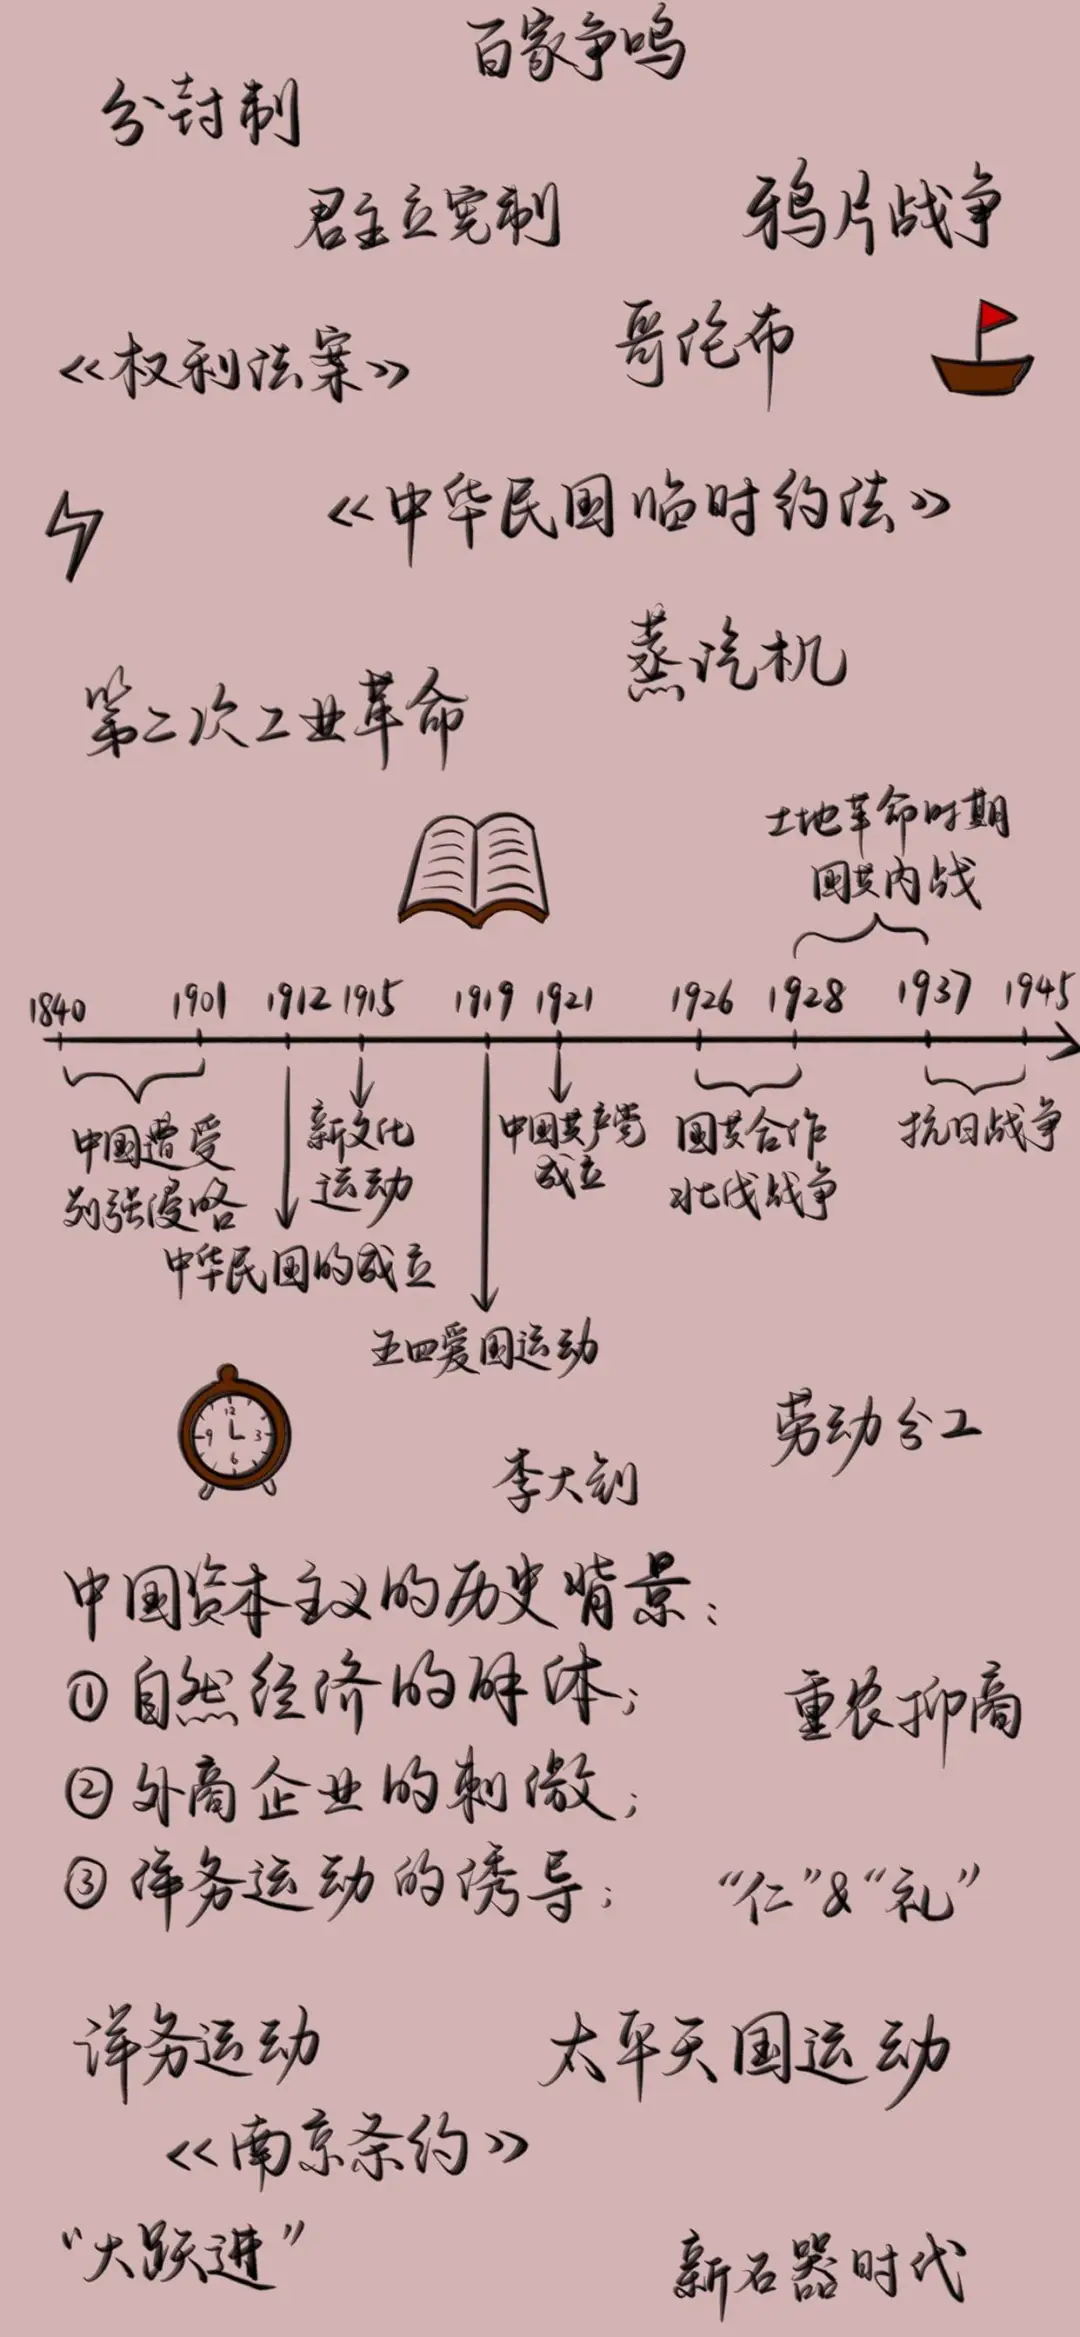 百家争鸣
分封制
君主立宪制
鸦片战争
哥伦布
《权利法案》
《中华民国临时约法》
蒸汽机
第二次工业革命
土地革命时期
国共内战
1840 1901 1912 1915 1919 1921 1926 1928 1937 1945
中国遭受
列强侵略
中华民国的成立
新文化
运动
五四爱国运动
中国共产党
成立
国共合作
北伐战争
抗日战争
12
9 3
6
劳动分工
李大钊
中国资本主义的历史背景:
①自然经济的解体;
重农抑商
②外商企业的刺激;
③洋务运动的诱导;
“仁”&“礼”
洋务运动
太平天国运动
《南京条约》
“大跃进”
新石器时代